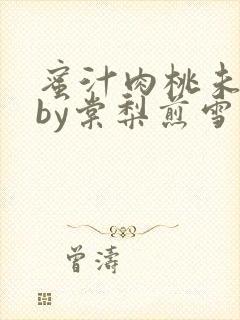 蜜汁肉桃未
by棠梨煎雪
曾濤